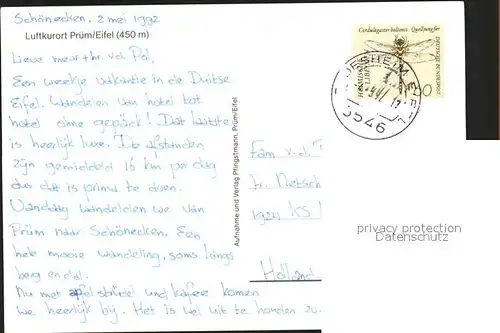 Schönecken, 2 mei 1992
Luftkurort Prüm/Eifel (450 m)
Lieve meer+hr. vd Pol,
Een weekje vakantie in de Duitse
Eifel. Wandelen van hotel tot
hotel ohne gepäck! Dat laatste
is heerlijk luxe. De afstanden
zijn gemiddeld 16 km per dag
dus dat is prima te doen.
Vandaag wandelden we van
Prüm naar Schönecken. Een
hele mooie wandeling, soms langs
berg en dal.
Nu met apfelstrüdel und kaffee komen
we heerlijk bij. Het is wel uit te houden zo.
Aufnahme und Verlag Pfingstmann, Prüm/Eifel
Cordulegaster bidentatus Quelljungfer
DEUTSCHE BUNDESPOST
5546
Fam v.d.
1924 KS
Holland
privacy protection
Datenschutz